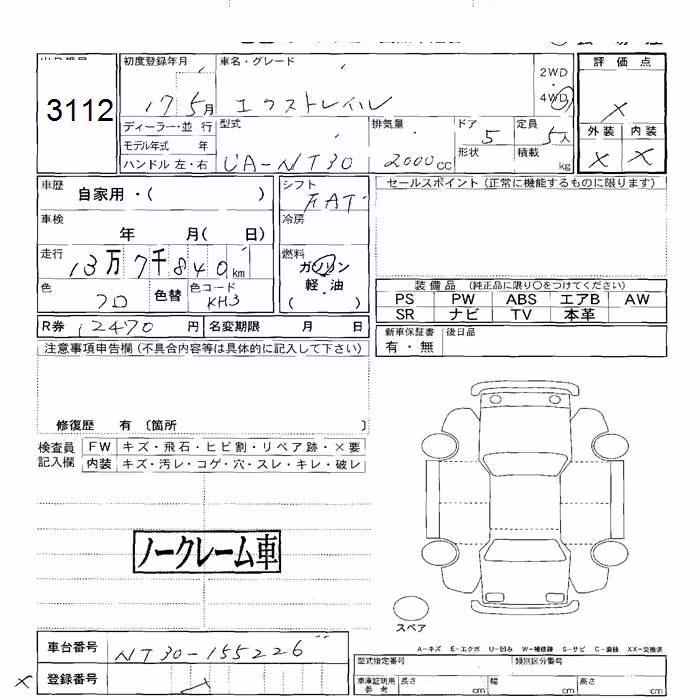 3112
初度登録年月
17 5月
車名・グレード
エクストレイル
2WD
・
4WD
評価点
X
外装 内装
X X
ディーラー・並 行
モデル年式 年
ハンドル 左・右
型式
UA-NT30
排気量
2000cc
ドア 5
形状
定員 5人
積載 kg
車歴 自家用・( )
車検
年 月( 日)
走行
13万7千840km
色
クロ
色替
色コード
KH3
シフト
FAT
冷房
燃料
ガソリン
軽・油
( )
R券 12470円
名変期限 月 日
セールスポイント(正常に機能するものに限ります)
装備品 (純正品に限り○をつけてください)
PS PW ABS エアB AW
SR ナビ TV 本革
新車保証書
有・無
後日品
注意事項申告欄(不具合内容等は具体的に記入して下さい)
修復歴 有〔箇所 〕
検査員
記入欄
FW キズ・飛石・ヒビ割・リペア跡・×要
内装 キズ・汚レ・コゲ・穴・スレ・キレ・破レ
ノークレーム車
スペア
A-キズ E-エクボ U-凹み W-補修跡 S-サビ C-腐蝕 XX-交換済
車台番号 NT30-155226
登録番号
型式指定番号
類別区分番号
車庫証明用
参考
長さ cm
幅 cm
高さ cm